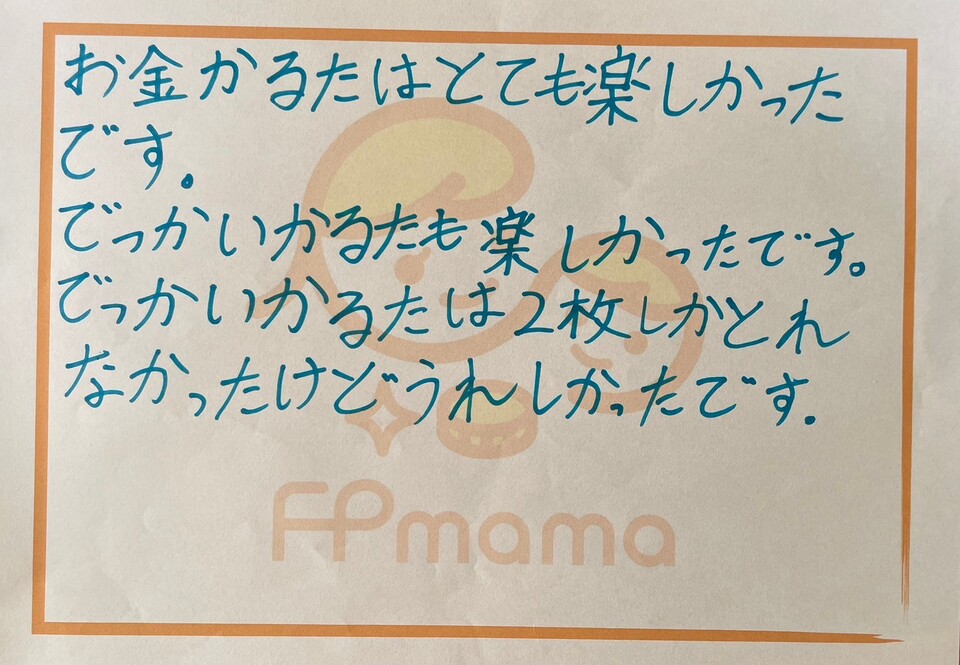 お金かるたはとても楽しかった
です。
でっかいかるたも楽しかったです。
でっかいかるたは2枚しかとれ
なかったけどうれしかったです.
FPmama